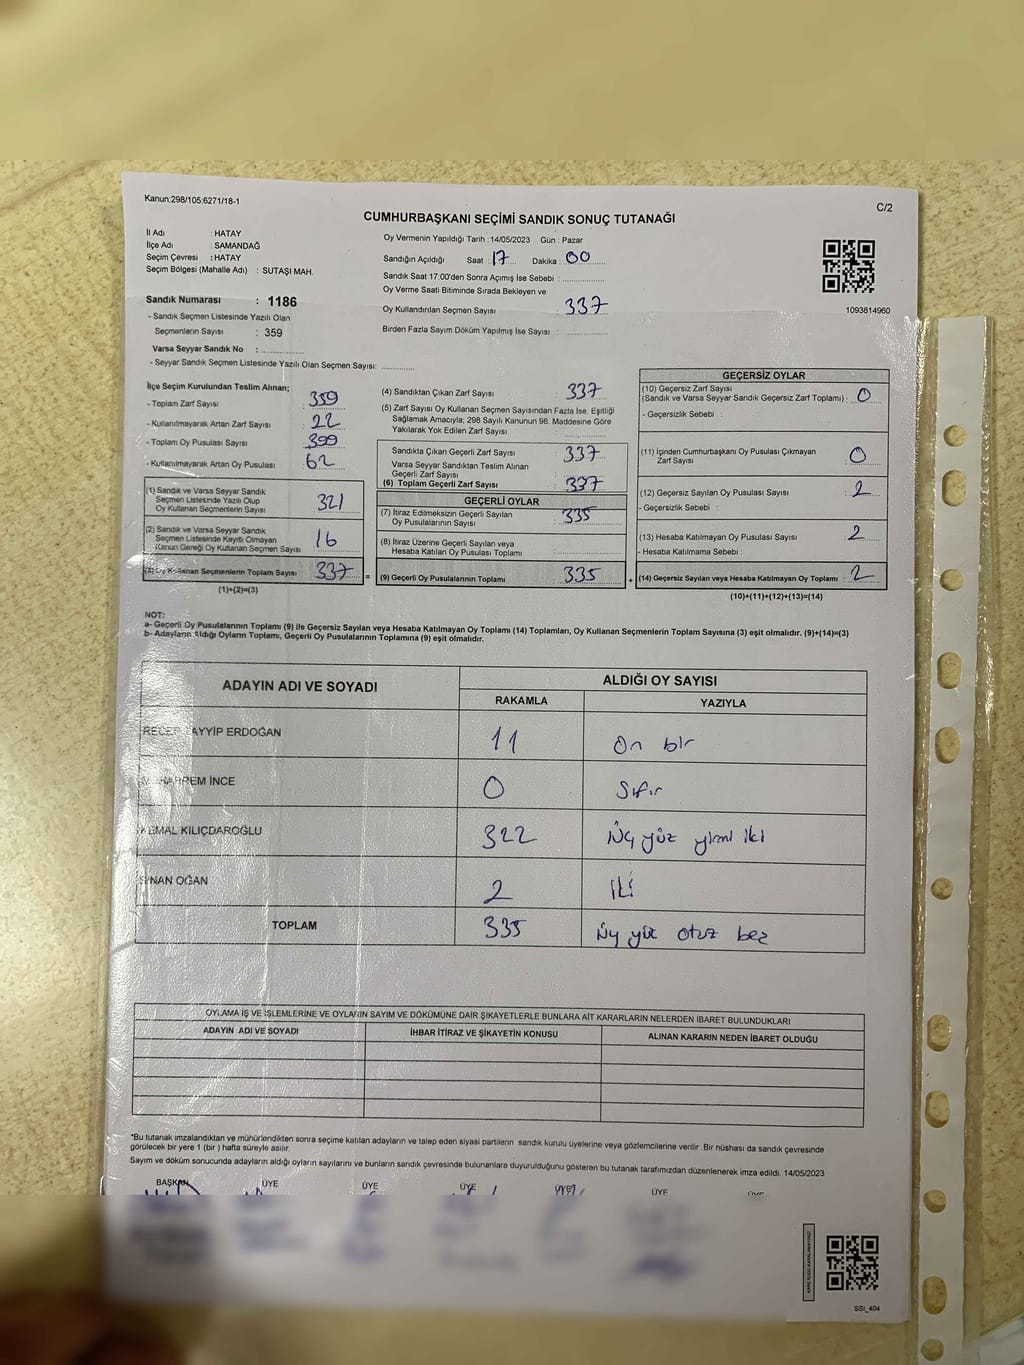 Kanun;298/105;6271/18-1
C/2
CUMHURBAŞKANI SEÇİMİ SANDIK SONUÇ TUTANAĞI
İl Adı : HATAY
İlçe Adı : SAMANDAĞ
Seçim Çevresi : HATAY
Seçim Bölgesi (Mahalle Adı) : SUTAŞI MAH.
Sandık Numarası : 1186
- Sandık Seçmen Listesinde Yazılı Olan
Seçmenlerin Sayısı : 359
Varsa Seyyar Sandık No :
- Seyyar Sandık Seçmen Listesinde Yazılı Olan Seçmen Sayısı:
Oy Vermenin Yapıldığı Tarih : 14/05/2023 Gün : Pazar
Sandığın Açıldığı Saat : 17 Dakika : 00
Sandık Saat 17:00'den Sonra Açımış İse Sebebi :
Oy Verme Saati Bitiminde Sırada Bekleyen ve
Oy Kullandırılan Seçmen Sayısı : 337
Birden Fazla Sayım Döküm Yapılmış İse Sayısı :
1093814960
İlçe Seçim Kurulundan Teslim Alınan;
- Toplam Zarf Sayısı : 359
- Kullanılmayarak Artan Zarf Sayısı : 22
- Toplam Oy Pusulası Sayısı : 399
- Kullanılmayarak Artan Oy Pusulası : 62
(1) Sandık ve Varsa Seyyar Sandık
Seçmen Listesinde Yazılı Olup
Oy Kullanan Seçmenlerin Sayısı 321
(2) Sandık ve Varsa Seyyar Sandık
Seçmen Listesinde Kayıtlı Olmayan
Kanun Gereği Oy Kullanan Seçmen Sayısı 16
(3) Oy Kullanan Seçmenlerin Toplam Sayısı 337
(1)+(2)=(3)
(4) Sandıktan Çıkan Zarf Sayısı : 337
(5) Zarf Sayısı Oy Kullanan Seçmen Sayısından Fazla İse, Eşitliği
Sağlamak Amacıyla; 298 Sayılı Kanunun 98. Maddesine Göre
Yakılarak Yok Edilen Zarf Sayısı :
Sandıkta Çıkan Geçerli Zarf Sayısı : 337
Varsa Seyyar Sandıktan Teslim Alınan
Geçerli Zarf Sayısı :
(6) Toplam Geçerli Zarf Sayısı : 337
GEÇERLİ OYLAR
(7) İtiraz Edilmeksizin Geçerli Sayılan
Oy Pusulalarının Sayısı : 335
(8) İtiraz Üzerine Geçerli Sayılan veya
Hesaba Katılan Oy Pusulası Toplamı :
= (9) Geçerli Oy Pusulalarının Toplamı : 335
GEÇERSİZ OYLAR
(10) Geçersiz Zarf Sayısı
(Sandık ve Varsa Seyyar Sandık Geçersiz Zarf Toplamı) : 0
- Geçersizlik Sebebi :
(11) İçinden Cumhurbaşkanı Oy Pusulası Çıkmayan
Zarf Sayısı : 0
(12) Geçersiz Sayılan Oy Pusulası Sayısı : 2
- Geçersizlik Sebebi :
(13) Hesaba Katılmayan Oy Pusulası Sayısı : 2
- Hesaba Katılmama Sebebi :
+ (14) Geçersiz Sayılan veya Hesaba Katılmayan Oy Toplamı : 2
(10)+(11)+(12)+(13)=(14)
NOT:
a- Geçerli Oy Pusulalarının Toplamı (9) ile Geçersiz Sayılan veya Hesaba Katılmayan Oy Toplamı (14) Toplamları, Oy Kullanan Seçmenlerin Toplam Sayısına (3) eşit olmalıdır. (9)+(14)=(3)
b- Adayların Aldığı Oyların Toplamı, Geçerli Oy Pusulalarının Toplamına (9) eşit olmalıdır.
ADAYIN ADI VE SOYADI
ALDIĞI OY SAYISI
RAKAMLA YAZIYLA
RECEP TAYYİP ERDOĞAN 11 On bir
MUHARREM İNCE 0 Sıfır
KEMAL KILIÇDAROĞLU 322 Üç yüz yirmi iki
SİNAN OĞAN 2 iki
TOPLAM 335 Üç yüz otuz beş
OYLAMA İŞ VE İŞLEMLERİNE VE OYLARIN SAYIM VE DÖKÜMÜNE DAİR ŞİKAYETLERLE BUNLARA AİT KARARLARIN NELERDEN İBARET BULUNDUKLARI
ADAYIN ADI VE SOYADI İHBAR İTİRAZ VE ŞİKAYETİN KONUSU ALINAN KARARIN NEDEN İBARET OLDUĞU
*Bu tutanak imzalandıktan ve mühürlendikten sonra seçime katılan adayların ve talep eden siyasi partilerin sandık kurulu üyelerine veya gözlemcilerine verilir. Bir nüshası da sandık çevresinde
görülecek bir yere 1 (bir ) hafta süreyle asılır.
Sayım ve döküm sonucunda adayların aldığı oyların sayılarını ve bunların sandık çevresinde bulunanlara duyurulduğunu gösteren bu tutanak tarafımızdan düzenlenerek imza edildi. 14/05/2023
BAŞKAN ÜYE ÜYE ÜYE ÜYE ÜYE ÜYE
SSI_404